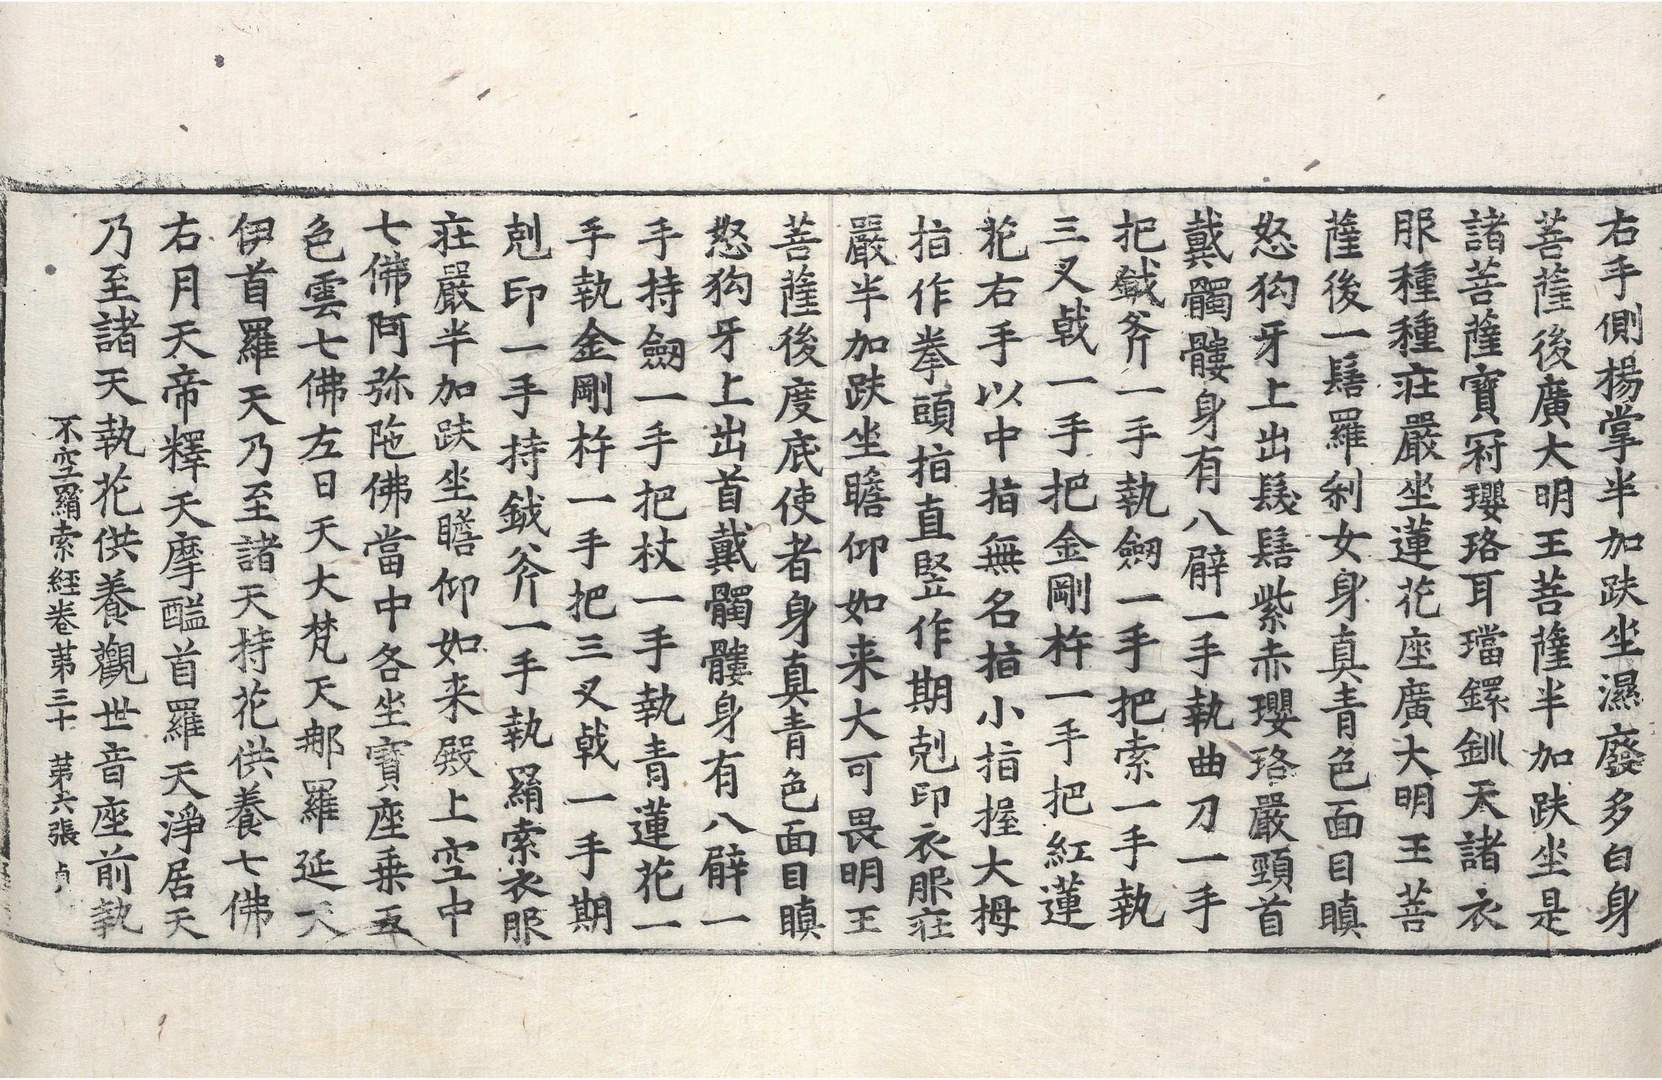 右手側揚掌半加趺坐濕廢多白身
菩薩後廣大明王菩薩半加趺坐是
諸菩薩寶冠瓔珞耳璫鐶釧天諸衣
服種種莊嚴坐蓮花座廣大明王菩
薩後一髻羅剎女身真青色面目瞋
怒狗牙上出髮髻紫赤瓔珞嚴頸首
戴髑髏身有八臂一手執曲刀一手
把鉞斧一手執劒一手把索一手執
三叉戟一手把金剛杵一手把紅蓮
花右手以中指無名指小指握大拇
指作拳頭指直竪作期剋印衣服莊
嚴半加趺坐瞻仰如来大可畏明王
菩薩後度底使者身真青色面目瞋
怒狗牙上出首戴髑髏身有八臂一
手持劒一手把杖一手執青蓮花一
手執金剛杵一手把三叉戟一手期
剋印一手持鉞斧一手執羂索衣服
莊嚴半加趺坐瞻仰如来殿上空中
七佛阿弥陁佛當中各坐寶座乗五
色雲七佛左日天大梵天那羅延天
伊首羅天乃至諸天持花供養七佛
右月天帝釋天摩醯首羅天淨居天
乃至諸天執花供養觀世音座前執
不空羂索經卷苐三十 苐六張 貞